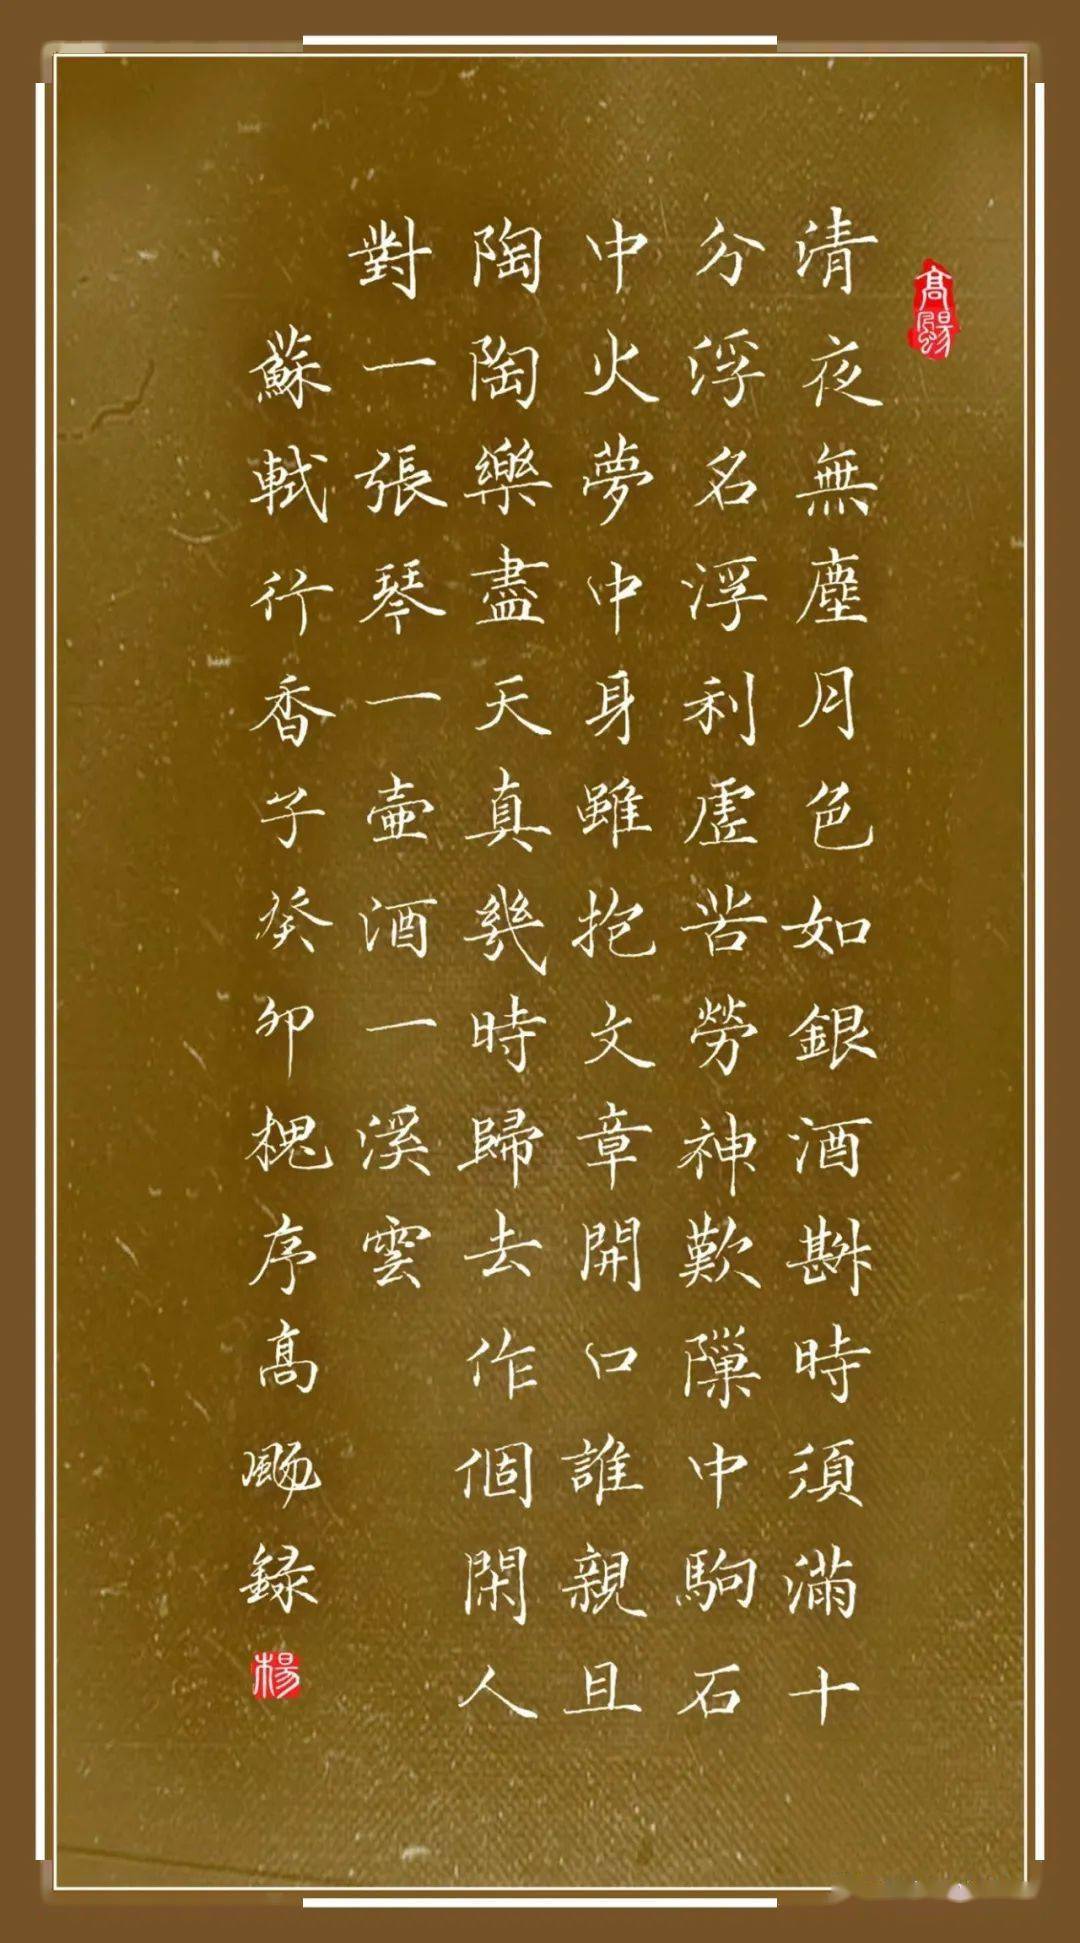 高颺
清夜無塵月色如銀酒斟時須滿十
分浮名浮利虛苦勞神歎隙中駒石
中火夢中身雖抱文章開口誰親且
陶陶樂盡天真幾時歸去作個閑人
對一張琴一壺酒一溪雲
蘇軾行香子癸卯槐序高颺録
楊